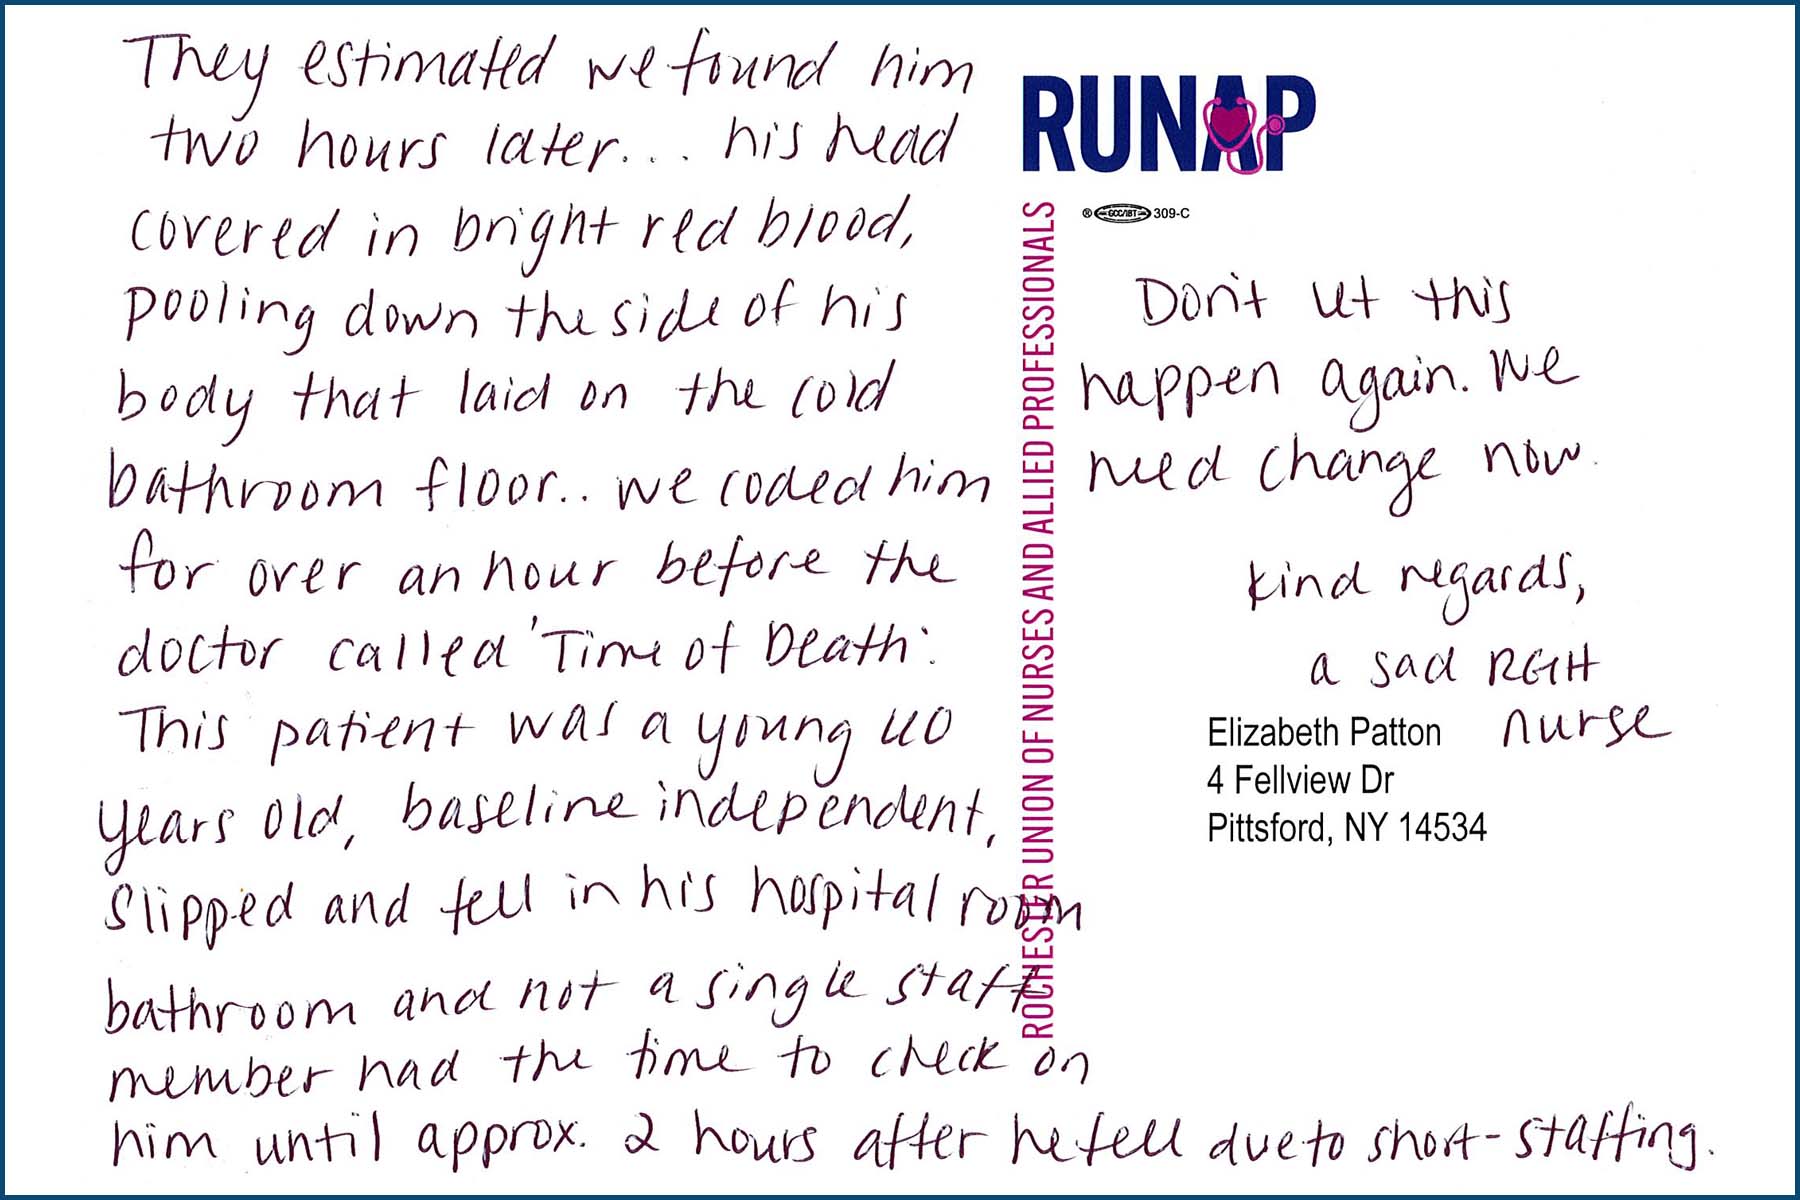 They estimated we found him
two hours later... his head
covered in bright red blood,
pooling down the side of his
body that laid on the cold
bathroom floor.. we coded him
for over an hour before the
doctor called 'Time of Death'.
This patient was a young 40
years old, baseline independent,
slipped and fell in his hospital room
bathroom and not a single staff
member had the time to check on
him until approx. 2 hours after he fell due to short-staffing.
RUNAP
® GCC/IBT 309-C
ROCHESTER UNION OF NURSES AND ALLIED PROFESSIONALS
Don't let this
happen again. We
need change now.
kind regards,
a sad RGH
nurse
Elizabeth Patton
4 Fellview Dr
Pittsford, NY 14534